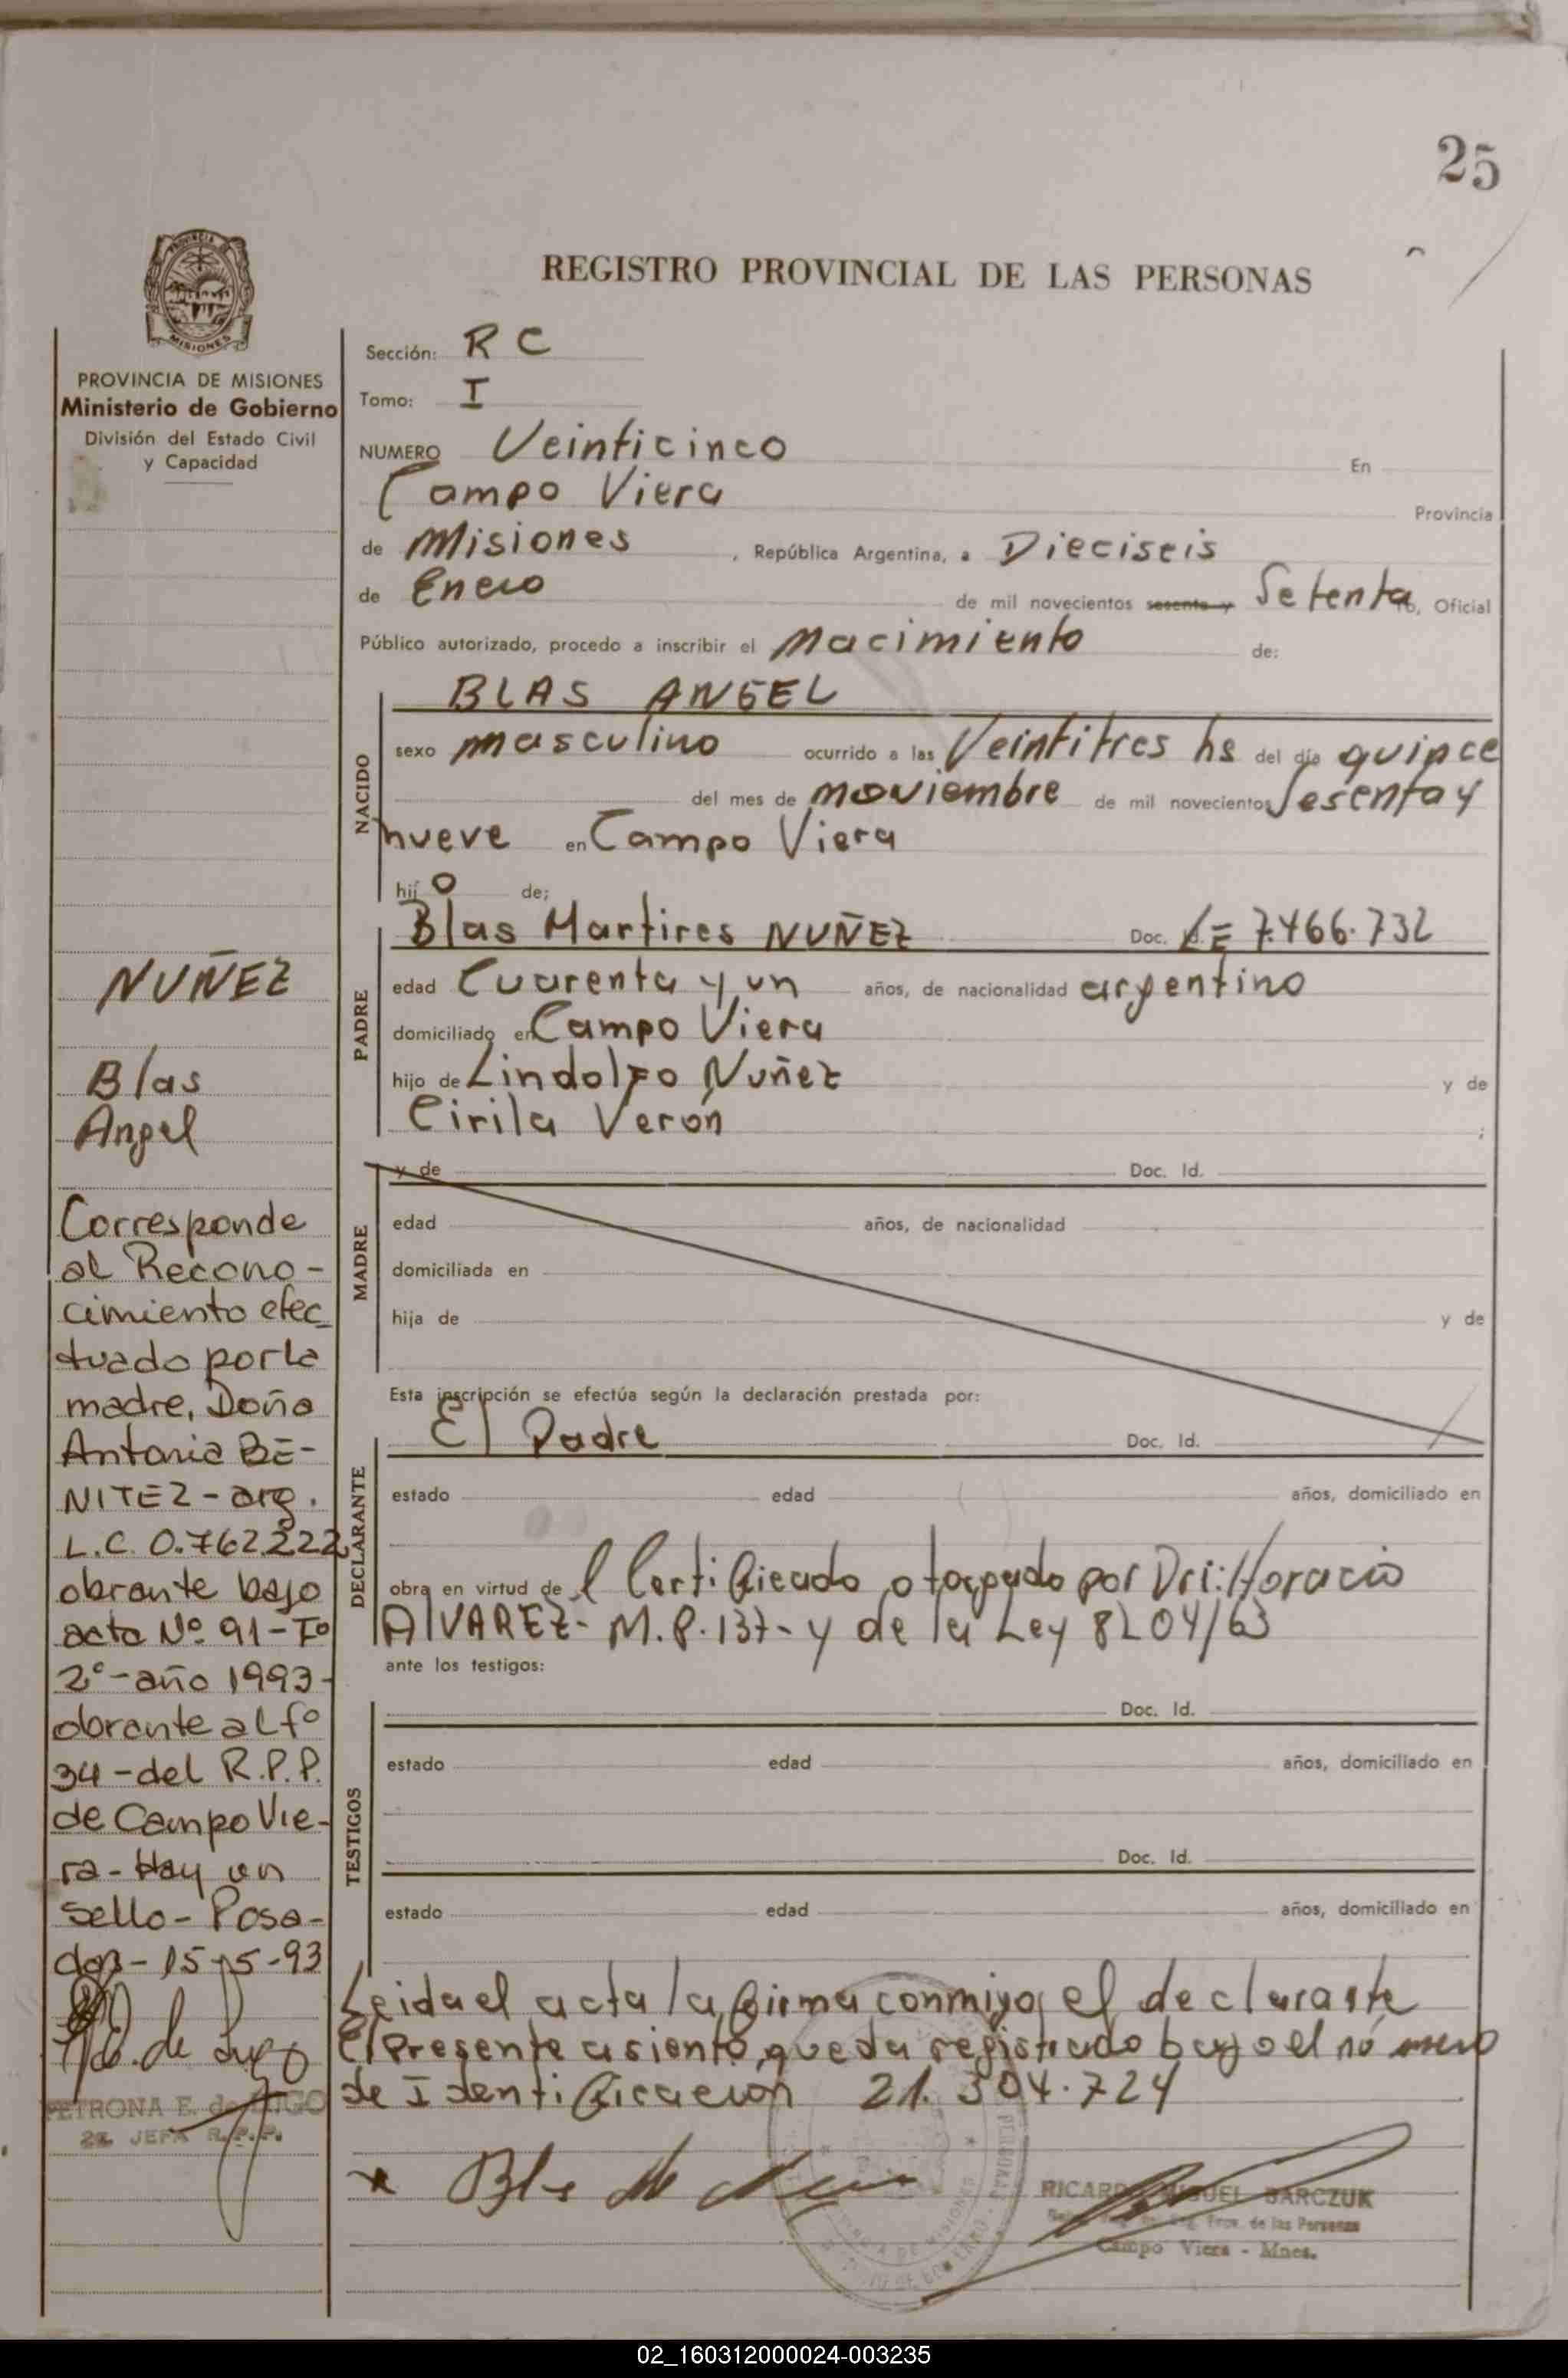 25
REGISTRO PROVINCIAL DE LAS PERSONAS
PROVINCIA DE MISIONES
Ministerio de Gobierno
División del Estado Civil
y Capacidad
NUÑEZ
Blas
Angel
Corresponde
al Recono-
cimiento efec_
tuado por la
madre, Doña
Antonia BE-
NITEZ - arg.
L.C. 0.762.222
obrante bajo
acta Nº 91 - Tº
2º - año 1993 -
obrante al fº
34 - del R.P.P.
de Campo Vie-
ra - Hay un
sello - Posa-
das - 15-5-93
PETRONA E. de LUGO
2a. JEFA R.P.P.
Sección: R C
Tomo: I
NUMERO Veinticinco En
Campo Viera Provincia
de Misiones , República Argentina, a Dieciseis
de Enero de mil novecientos sesenta y Setenta, Oficial
Público autorizado, procedo a inscribir el Nacimiento de:
NACIDO
BLAS ANGEL
sexo masculino ocurrido a las Veintitres hs del día quince
del mes de noviembre de mil novecientos Sesenta y
nueve en Campo Viera
hij o de;
PADRE
Blas Martires NUÑEZ Doc. LE 7.466.732
edad Cuarenta y un años, de nacionalidad argentino
domiciliado en Campo Viera
hijo de Lindolfo Nuñez y de
Cirila Verón ;
MADRE
y de Doc. Id.
edad años, de nacionalidad
domiciliada en
hija de y de
Esta inscripción se efectúa según la declaración prestada por:
DECLARANTE
El Padre Doc. Id.
estado edad años, domiciliado en
obra en virtud de l Certificado otorgado por Dr.: Horacio
ALVAREZ - M.P. 137 - y de la Ley 8204/63
ante los testigos:
TESTIGOS
Doc. Id.
estado edad años, domiciliado en
Doc. Id.
estado edad años, domiciliado en
Leida el acta la firma conmigo el declarante
El presente asiento, queda registrado bajo el número
de Identificacion 21.304.724
RICARDO MIGUEL BARCZUK
Reg. Prov. de las Personas
Campo Viera - Mnes.
02_160312000024-003235